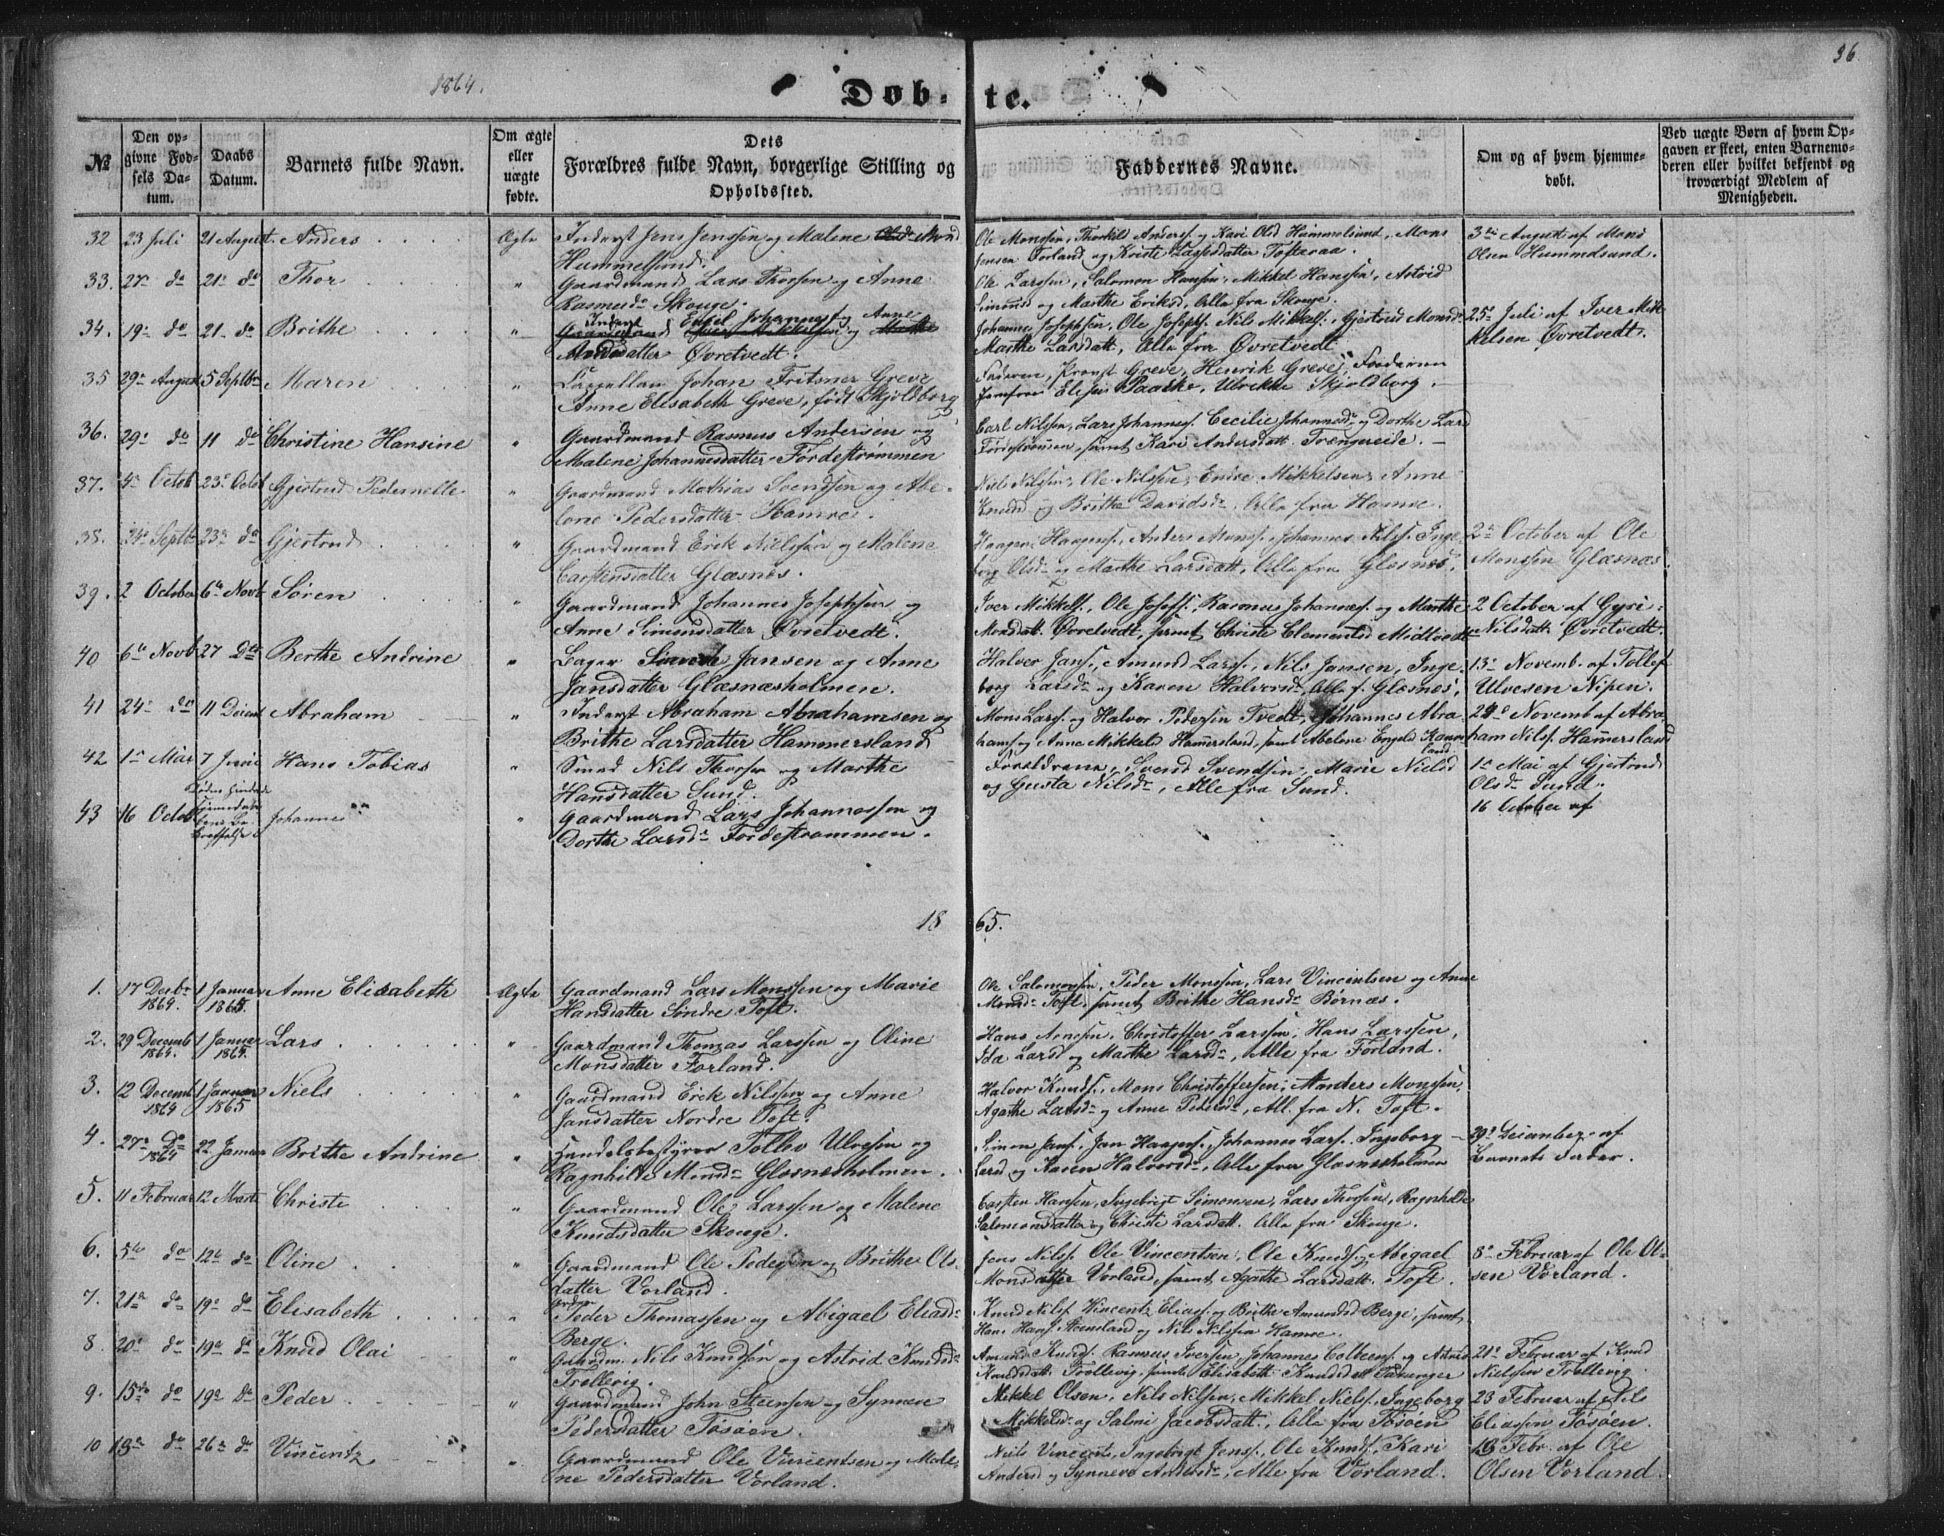 1864.
Døb-
te.
36
№
Den op-
givne Fød-
sels Da-
tum.
Daabs
Datum.
Barnets fulde Navn.
Om ægte
eller
uægte
fødte.
Dets
Forældres fulde Navn, borgerlige Stilling og
Opholdssted.
Faddernes Navne.
Om og af hvem hjemme-
døbt.
Ved uægte Børn af hvem Op-
gaven er skeet, enten Barnemo-
deren eller hvilket bekjendt og
troværdigt Medlem af
Menigheden.
32 23 Juli 21 August Anders Ægte Inderst Jens Jenssen og Malene Monsd
Hummelsund.
Ole Monssen, Thorkild Anders. og Kari Olsd Hummelsund, Mons
Jensen Forland og Kriste Larsdatter Tofteraa.
3die August af Mons
Olsen Hummelsund.
33. 27de do 21de do Thor " Gaardmand Lars Thorsen og Anne
Rasmusdr Skouge.
Ole Larssen, Salomon Hanssen, Mikkel Hanssen, Astrid
Simonsd og Marthe Eriksd, Alle fra Skouge.
34. 19de do 21 do Brithe " Inderst Engel Johannes. og Anne
Andersdatter Øvretvedt.
Johannes Josephsen, Ole Josephs. Nils Mikkels. Gjertrud Monsdr
Marthe Larsdatt, Alle fra Øvretvedt.
25de Juli af Iver Mik-
kelsen Øvretvedt.
35 29de August 5 Septbr Maren " Cappellan Johan Fritsner Greve
Anne Elisabeth Greve, født Skjoldborg
Faderen, Provst Greve, Henrik Greve, Fruerne
Jomfru Elise Paaske, Ulrikke Skjoldborg.
36. 29de do 11 do Christine Hansine " Gaardmand Rasmus Andersen og
Malene Johannesdatter Førdestrømmen
Carl Nilssen, Lars Johannes. Cecilie Johannesdr og Dorthe Larsd
Førdestrømmen, samt Kari Andersdatt. Trængereide.
37. 4de Octob 23de Octob Gjertrud Pedernelle " Gaardmand Mathias Svendsen og Abe-
lone Pedersdatter Hamre.
Niels Nilssen, Ole Nilssen, Endre Mikkelsen, Anne
Knudsd og Brithe Davidsdr, Alle fra Hamre.
38. 24de Septbr 23de do Gjertrud " Gaardmand Erik Nielssen og Malene
Carstensdatter Glæsnes.
Haagen Haagens., Anders Monss. Johannes Nilss. Inge-
borg Olsdr og Marthe Larsdatt, Alle fra Glesnes,
2de October af Ole
Monssen Glæsnæs
39. 2 October 6te Novb Søren " Gaardmand Johannes Josephsen og
Anne Simonsdatter Øvretvedt.
Iver Mikkels., Ole Josefs., Rasmus Johannes. og Marthe
Monsdatt. Øvretvedt, samt Christi Clementsd Midttvedt
2 October af Gyri
Nilsdatt. Øvretvedt.
40 6te Novb 27 Do Berthe Andrine " Bager Jansen og Anne
Jansdatter Glæsnæsholmen.
Halver Jans., Amund Lars., Nils Jansen, Inge-
borg Larsdr og Karen Halversdr, Alle f. Glæsnes,
13de Novemb. af Tollef
Ulvesen Nipen.
41 24de do 11 Decemb Abraham " Inderst Abraham Abrahamsen og
Brithe Larsdatter Hammersland
Mons Lars. og Halvor Pedersen Tvedt, Johannes Abra-
hams og Anne Mikkelsd Hamersland, samt Abelone Engelsd Hamers-
land.
24de Novemb af Abra-
ham Nils. Hamersland
42 1ste Mai 7 Juni Hans Tobias " Smed Nils Thorsen og Marthe
Hansdatter Sund.
Forældrene, Svend Svendsen, Marie Nielsd
og Gusta Nilsdr, Alle fra Sund.
1ste Mai af Gjertrud
Olsdr Sund.
43 16 Octob Johannes " Gaardmand Lars Johannessen og
Dorthe Larsdr Førdestrømmen.
16 October af
18
65.
1. 17 Decbr
1864. 1 Januar
1865. Anne Elisabeth Ægte Gaardmand Lars Monssen og Marie
Hansdatter Søndre Toft.
Ole Salomonsen, Peder Monssen, Lars Vincentsen og Anne
Monsdr Toft, samt Brithe Hansdr Børnæs.
2. 29 Decemb
1864. 1 Januar
1864. Lars " Gaardmand Thomas Larssen og Oline
Monsdatter Forland.
Hans Arnesen, Christoffer Larssen, Hans Larssen,
Ida Larsd og Marthe Larsdr, Alle fra Forland.
3. 12 Decemb
1864 1 Januar
1865 Niels " Gaardmand Erik Nilssen og Anne
Jansdatter Nordre Toft.
Halvor Knuds., Mons Christoffersen, Anders Monssen,
Agathe Larsdr og Anne Pedersdr, All. fra N. Toft.
4. 27de Do
1864 22 Januar Brithe Andrine " Handelsbestyrer Tollev Ulvesen og
Ragnhilte Monsdr Glesnesholmen.
Simon Jans., Jan Haagens., Johannes Lars. Ingeborg
Larsd og Karen Halversdr, Alle fra Glæsnesholmen
29de December af
Barnets Fader.
5. 11 Februar 12 Marts Christe " Gaardmand Ole Larssen og Malene
Knudsdatter Skouge.
Carsten Hansen, Ingebrigt Simonsen, Lars Thorsen, Ragnhilde
Salomonsdatter og Christi Larsdatt. Alle fra Skouge.
6. 5te do 12te do Oline " Gaardmand Ole Pedersen og Brithe Ols-
datter Vorland.
Jens Nils. Ole Vincentsen, Ole Knuds. Abigael
Monsdatter Vorland, samt Agathe Larsdatt. Toft.
8de Februar af Ole Ol-
sen Vorland.
7. 21de do 19de do Elisabeth " Peder Thomassen og Abigael Eliasdr
Berge.
Knud Nils. Vincentz Elias. og Brithe Amundsd Berge, samt
Hans Hans. Steensland og Nils Nilssen Hamre.
8. 20de do 19de do Knud Olai " Gaardm. Nils Knudsen og Astrid Knudsdr
Trellevig.
Amund Knuds. Rasmus Iversen, Johannes Colbeens. og Astrid
Knudsdatt. Trellevig, samt Elisabeth Knudsdatt Tellevig
21de Februar af Knud
Nielsen Trellevig
9. 15de do 19de Do Peder " Gaardmand John Steensen og Synneve
Pedersdatter Tøsøen.
Mikkel Olsen, Nils Nilsen, Mikkel Niels. Ingeborg
Mikkelsdr og Salmi Jacobsdatt., Alle fra Tøsøen
23 Februar af Nils
Eliassen Tøsøen.
10 18de do 26de do Vincentz " Gaardmand Ole Vincentsen og Male-
ne Pedersdatter Vorland.
Niels Vincents, Ingebrigt Jens., Ole Knuds. Kari
Andersd og Synneve Andersdr, Alle fra Vorland.
18 Febr. af Ole
Olsen Vorland.